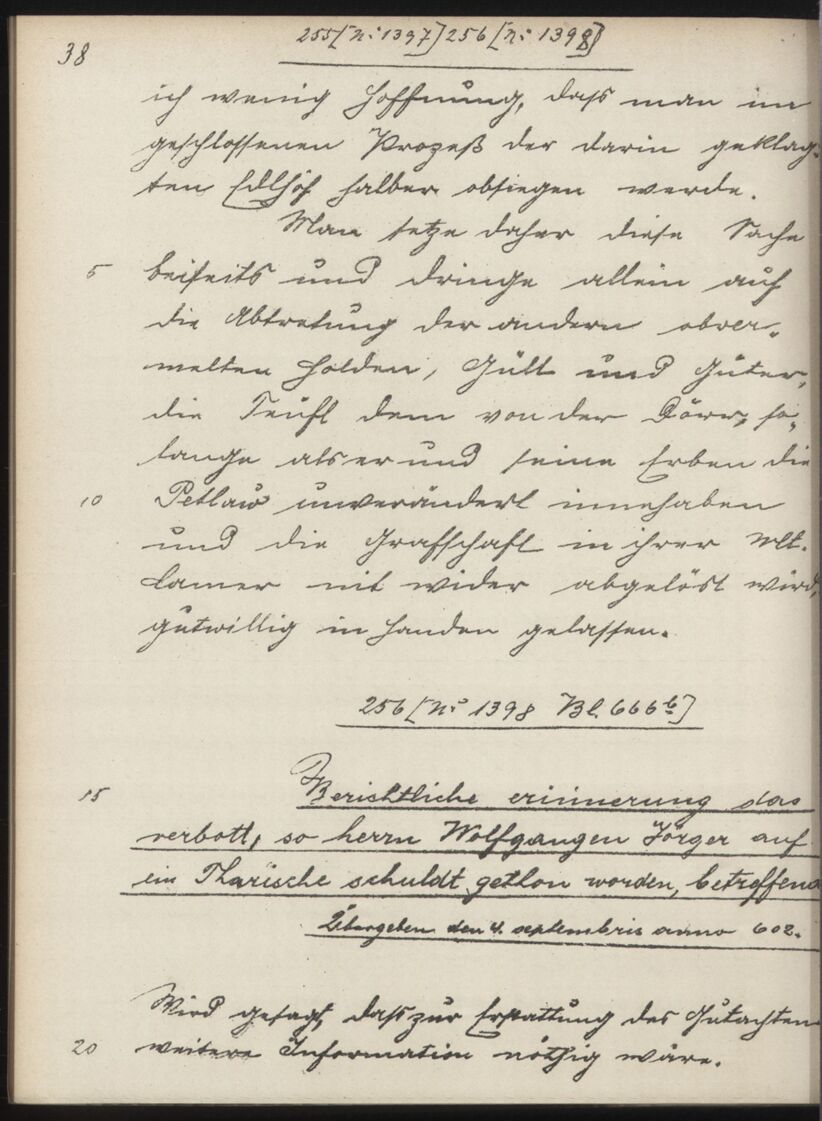 38
255 [N: 1397] 256 [N: 1398]
ich wenig Hoffnung, dass man im
geschlossenen Prozeß der darin geklag-
ten Edlhöf halber obsiegen werde.
Man setze daher diese Sache
5 beiseits und dringe allein auf
die Abtretung der andern obver-
melten Holden, Gült und Güter,
die Teufl dem von der Dörr, so-
lange als er und seine Erben die
10 Petlaw unverändert innehaben
und die Grafschaft in ihrer Mt.
Camer nit wider abgelöst wird,
gutwillig in Handen gelassen.
256 [N: 1398 Bl. 666b]
15 Berichtliche erinnerung das
verbott, so herrn Wolfgangen Jörger auf
ein Tharische schuldt gethon worden, betreffend
Übergeben den 4. septembris anno 602.
Wird gesagt, dass zur Erstattung des Gutachten
20 weitere Information nöthig wäre.